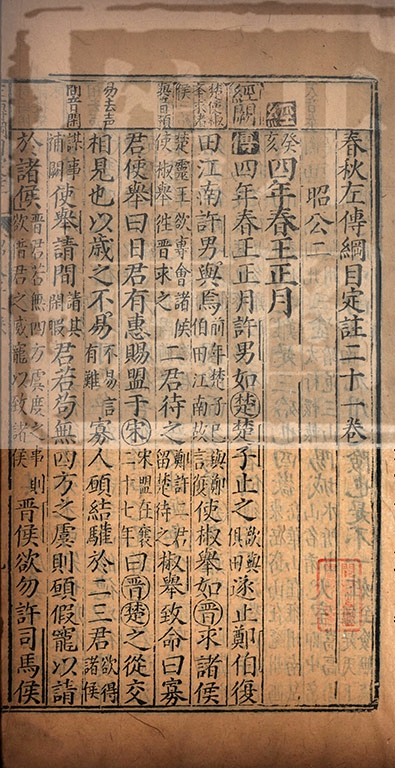 春秋左傳綱目定註二十一卷
昭公二
經癸亥四年春王正月
經闕
傳四年春王正月許男如楚楚子止之欲與俱田遂止鄭伯復
田江南許男與焉前年楚子已與鄭伯田江南故言復使椒舉如晉求諸侯
與音預
楚靈王欲專會諸侯使椒舉往晉求之二君待之鄭許二君留楚待之椒舉致命曰寡
君使舉曰日君有惠賜盟于宋宋盟在襄二十七年曰晉楚之從交
易去声
相見也以歲之不易不易言有難寡人願結驩於二三君欲得諸侯
間音閑
謀事補闕使舉請間請其閒暇君若苟無四方之虞則願假寵以請
於諸侯晉君若無四方虞度之事則欲借君之威寵以致諸侯晉侯欲勿許司馬侯